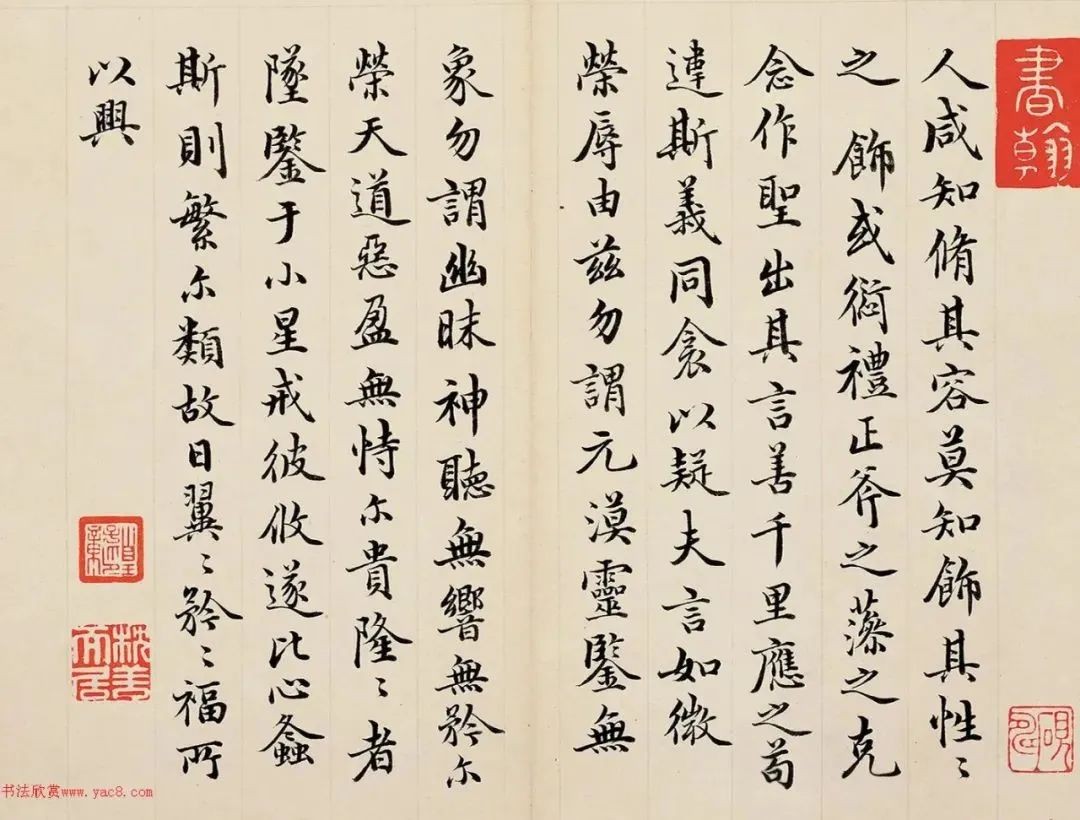 書翰
人咸知脩其容莫知飾其性〻
之飾或愆禮正斧之藻之克
念作聖出其言善千里應之苟
違斯義同衾以疑夫言如微
榮辱由茲勿謂元漠靈鑒無
象勿謂幽昧神聽無響無矜尔
榮天道惡盈無恃尔貴隆〻者
墜鑒于小星戒彼攸遂比心螽
斯則繁尔類故曰翼〻矜〻福所
以興
书法欣赏www.yac8.com